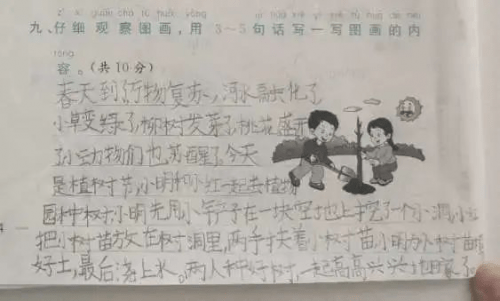 zǐ xì guān chá tú huà yòng
九、仔细观察图画，用 3～5 句话写一写图画的内
róng
容。（共10分）
春天到了万物复苏，河水融化了
小草变绿了,柳树发芽了,桃花盛开
了小动物们也苏醒了今天
是植树节,小明和小红一起去植物
园种树小明先用小铲子在一块空地上挖了一个小洞,小红
把小树苗放在树洞里,两手扶着小树苗小明为小树苗
好土,最后浇上水。两人种好树,一起高高兴兴地回家了。